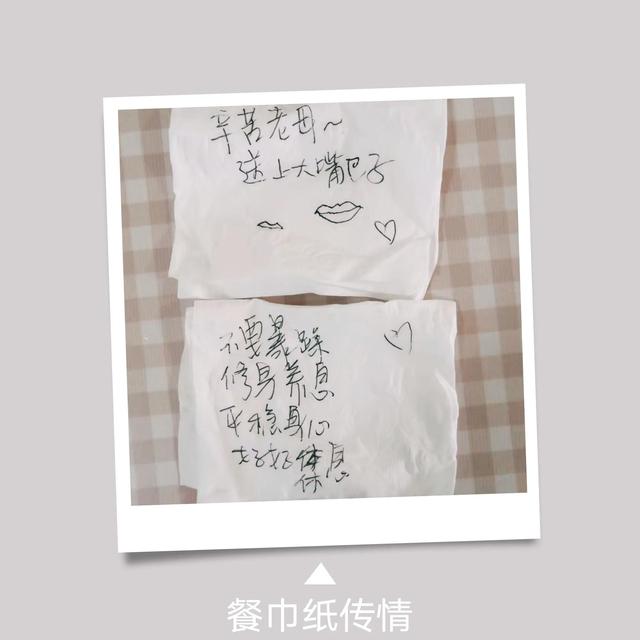 辛苦老母~
送上大嘴巴子
不要暴躁
修身养息
平稳身心
好好体息
休
餐巾纸传情